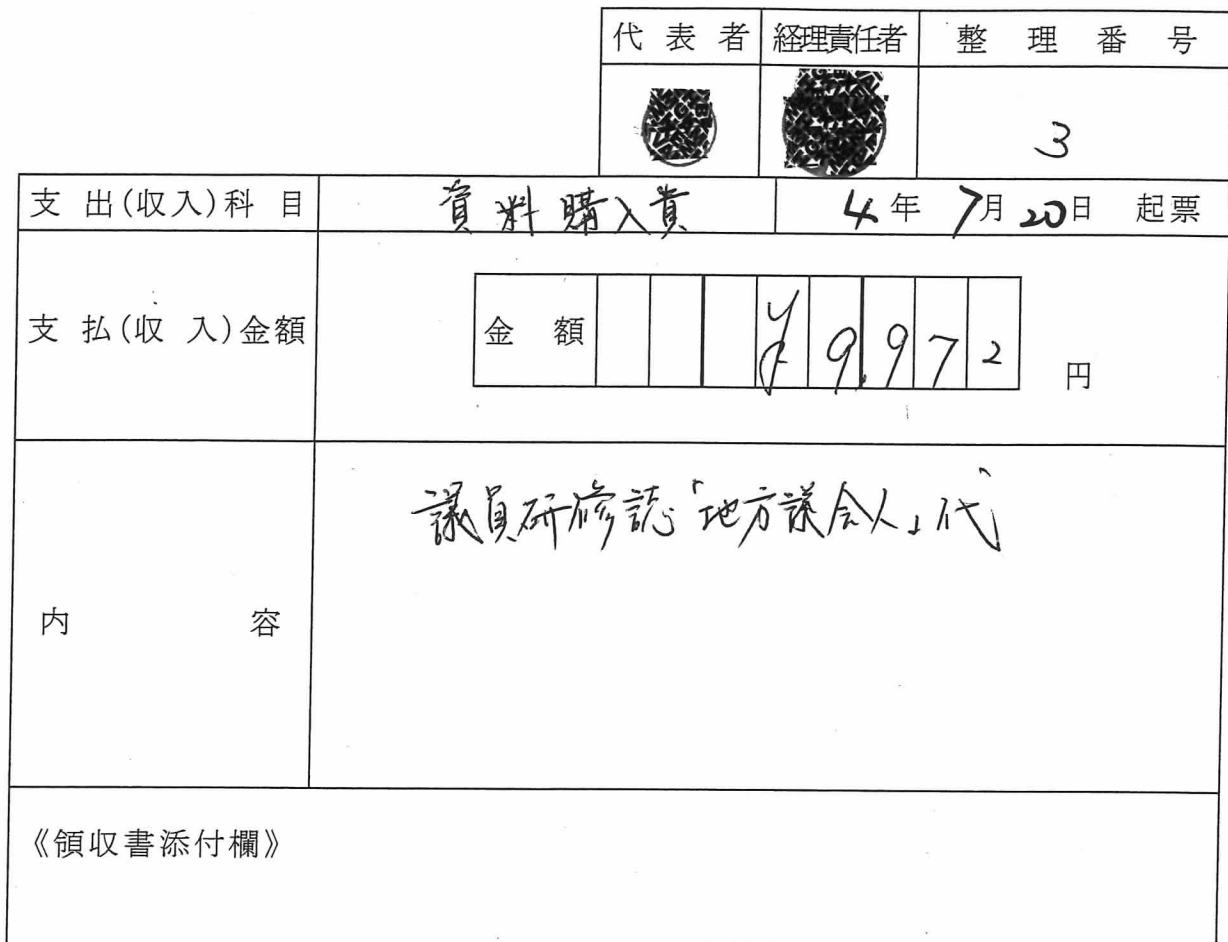 代表者 経理責任者 整理番号
3
支出(収入)科目 資料購入費 4年7月20日 起票
支払(収入)金額 金額 ¥9,972 円
議員研修誌「地方議会人」代
内容
《領収書添付欄》